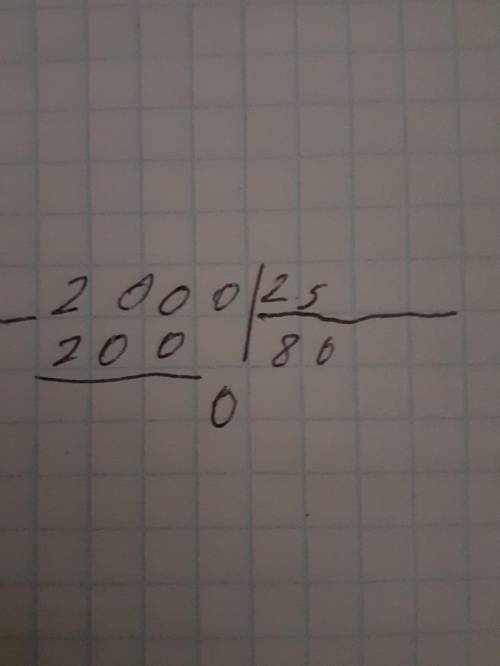 2000 25
200 80
0